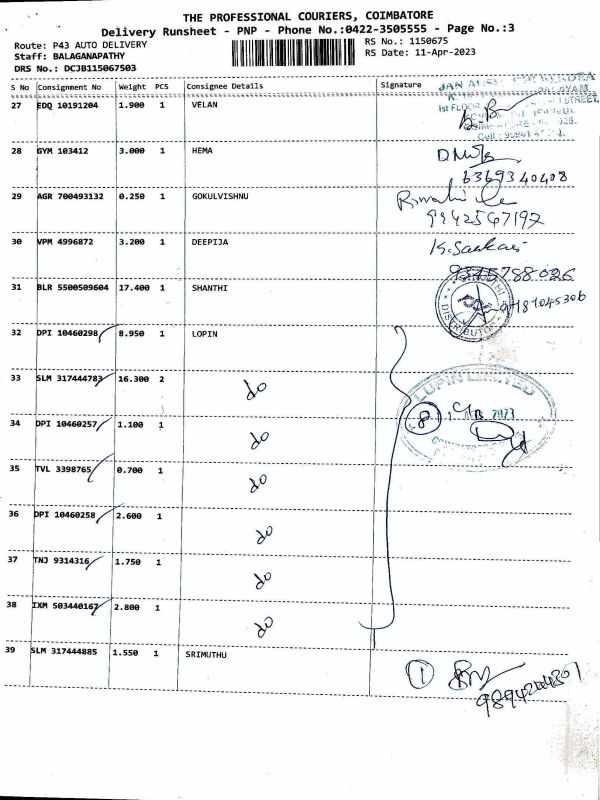 THE PROFESSIONAL COURIERS, COIMBATORE
Delivery Runsheet - PNP - Phone No.:0422-3505555 - Page No.:3
Route: P43 AUTO DELIVERY
RS No.: 1150675
Staff: BALAGANAPATHY
RS Date: 11-Apr-2023
DRS No.: DCJB115067503
S No Consignment No Weight PCS Consignee Details Signature
27 EDQ 10191204 1.900 1 VELAN
1st FLOOR STREET.
28 GYM 103412 3.000 1 HEMA
6369340408
29 AGR 700493132 0.250 1 GOKULVISHNU
9942547197
30 VPM 4996872 3.200 1 DEEPIJA K. Sankar
9345788026
31 BLR 5500509604 17.400 1 SHANTHI
DISTRIBUTOR 9787045306
32 DPI 10460298 8.950 1 LOPIN
33 SLM 317444783 16.300 2 do
LUPIN LIMITED
34 DPI 10460257 1.100 1 do 8 2023
35 TVL 3398765 0.700 1 do
36 DPI 10460258 2.600 1 do
37 TNJ 9314316 1.750 1 do
38 IXM 503440167 2.800 1 do
39 SLM 317444885 1.550 1 SRIMUTHU 1